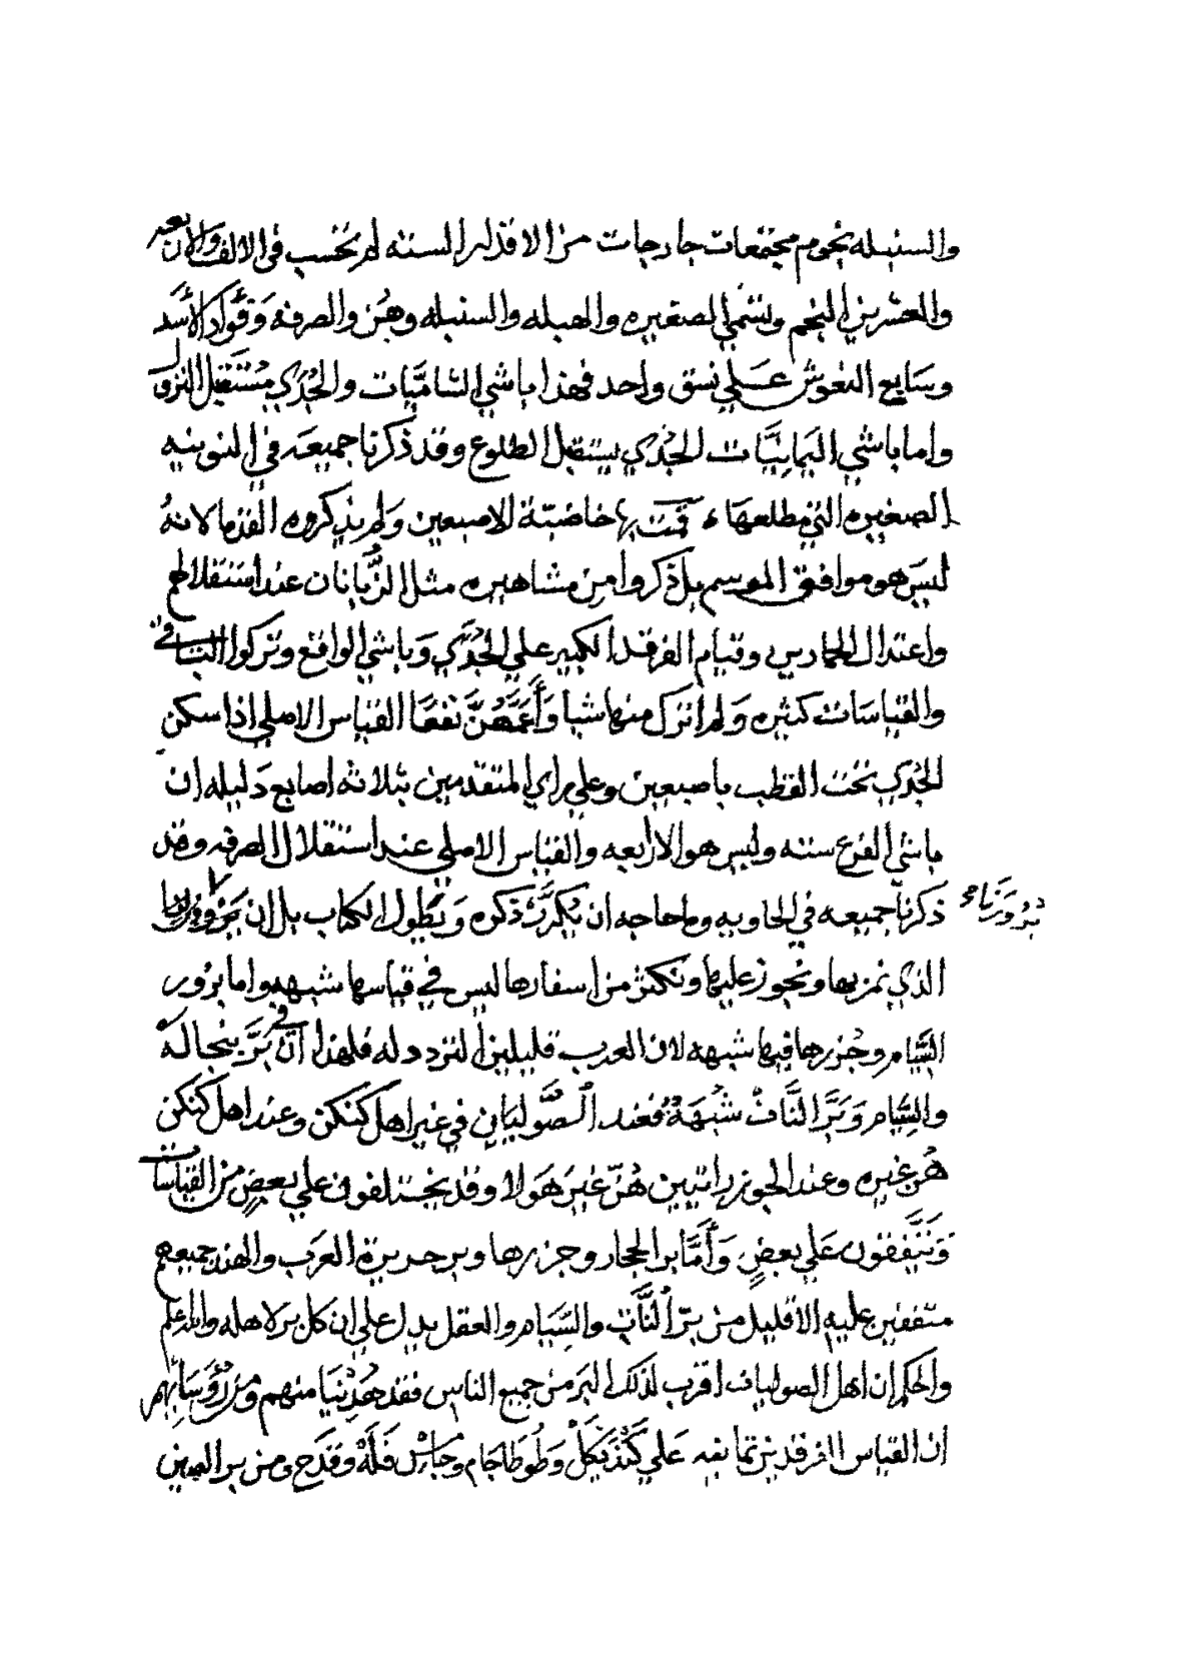 والسنبله نجوم مجتمعات خارجات من الاقدار السته لم تحسب في الالف والاربعه
والعشرين النجم وتسمي الصغيره والهبله والسنبله وهن والصرفه وفؤاد الأسد
وسابع النعوش علي نسق واحد فهذا باشي الشاميات والجدي مستقبل النزول
واما باشي اليمانيات الجدي يستقبل الطلوع وقد ذكرنا جميعه في النونيه
الصغيره التي مطلعها قمت بها خاضبة الاصبعين ولم يذكروه القدما لانه
ليس هو موافق الموسم بل ذكروا من مشاهيره مثل الزبانان عند استقلالهم
واعتدال الحمارين وقيام الفرقد الكبير علي الجدي وباشي الواقع وتركوا الباقي
والقياسات كثيره ولم اترك منها شيا وأعمهن نفعا القياس الاصلي اذا سكن
الجدي تحت القطب باصبعين وعلي راي المتقدمين بثلاثه اصابع دليله ان
باشي الفرغ سته وليس هو الا اربعه والقياس الاصلي عند استقلال الصرفه وقد
ذكرنا جميعه في الحاويه وما حاجه ان يكرر ذكره ونطول الكتاب بل ان
برورناه
الذي نمر بها ونجوز عليها ونكثر من اسفارها ليس في قياسها شبهه واما برور
السيام وجزرها فيها شبهه لان العرب قليلين التردد له فلهذا ان في بر بنجاله
والسيام وبر النات شبهة فعند الصوليان في غير اهل كنكن وعند اهل كنكن
هن غيره وعند الجوزراتيين هن غير هولا وقد يختلفون علي بعض من القياسات
ويتفقون علي بعض وأما بر الحجاز وجزرها وبر جزيرة العرب والهند جميعهم
متفقين عليه الا قليل من بر النات والسيام والعقل يدل علي ان كل بر لاهله والله اعلم
والحكم ان اهل الصوليان اقرب لذلك البر من جميع الناس فقد هدنيا منهم ومن رؤسائهم
ان القياس الفرقدين ثمانيه علي كندبكل وطوطاجام وخباس فله وقدح ومن بر الصين